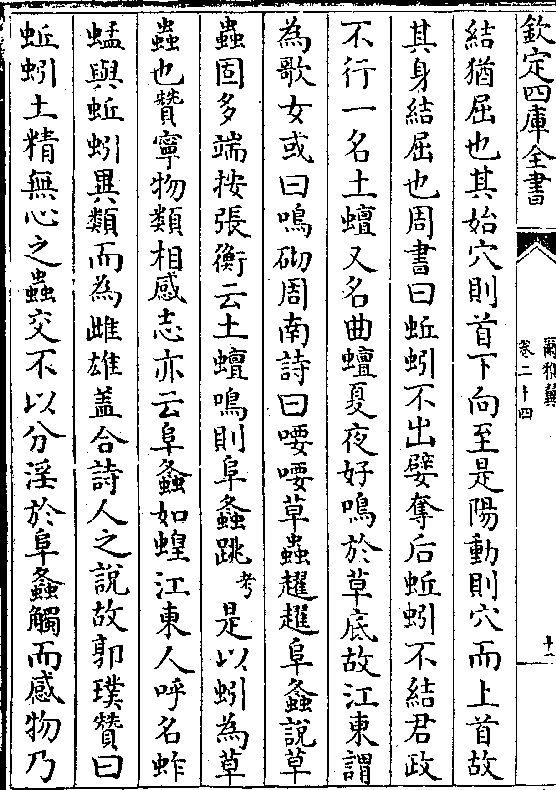 欽定四庫全書
爾雅翼
卷二十四
十一
結猶屈也其始穴則首下向至是陽動則穴而上首故
其身結屈也周書曰蚯蚓不出嬖奪后蚯蚓不結君政
不行一名土蟺又名曲蟺夏夜好鳴於草底故江東謂
為歌女或曰鳴砌周南詩曰喓喓草蟲趯趯阜螽說草
蟲固多端按張衡云土蟺鳴則阜螽跳考是以蚓為草
蟲也贊寧物類相感志亦云阜螽如蝗江東人呼名蚱
蜢與蚯蚓異類而為雌雄蓋合詩人之說故郭璞贊曰
蚯蚓土精無心之蟲交不以分淫於阜螽觸而感物乃